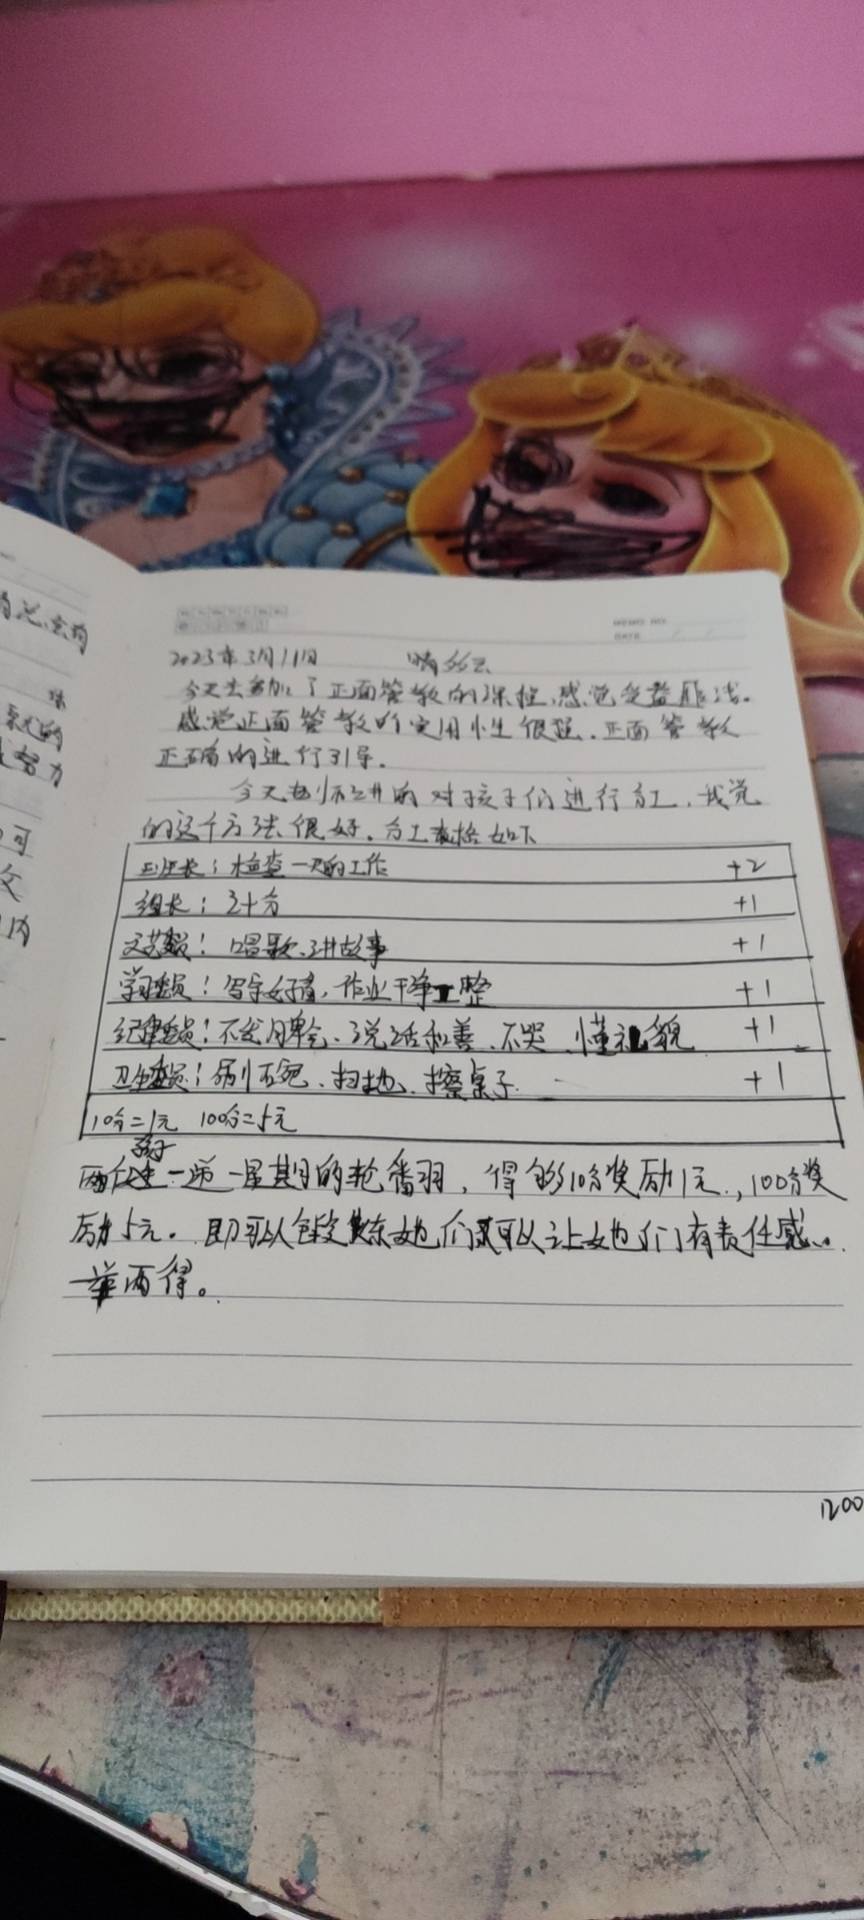 的总会有
坏
系统的
努力
可
文
内
MEMO NO.
DATE
2023年3月11日 晴多云
今天去参加了正面管教的课程,感觉受益匪浅。
感觉正面管教的实用性很强.正面管教
正确的进行引导.
今天老师讲的对孩子们进行分工,我觉
的这个方法很好.分工表格如下
班长:检查一天的工作 +2
组长:计分 +1
文艺委员:唱歌、讲故事 +1
学习委员:写字好看,作业干净工整 +1
纪律委员:不发脾气、说话和善、不哭、懂礼貌 +1
卫生委员:刷碗、扫地、擦桌子 +1
10分=1元 100分=5元
孩子
两位一一星期的轮番, 得够10分奖励1元.,100分奖
励5元。即可以约束她们又可以让她们有责任感..
一举两得。
1200